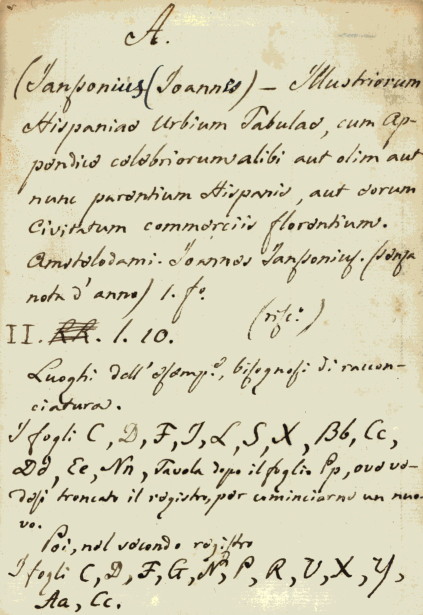 A.
(Janssonius (Joannes) — Illustriorum
Hispaniae Urbium Tabulae, cum Ap-
pendice celebriorum alibi aut olim aut
nunc parentium Hispanis, aut eorum
Civitatum commerciis florentium.
Amstelodami. Joannes Janssonius. (senza
nota d'anno) 1. fo.
(risc.)
II. RR. l. 10.
Luoghi dell'esemp.e, bisognosi di raccon-
ciatura.
I fogli C, D, F, I, L, S, X, Bb, Cc,
Dd, Ee, Nn, Tavola dopo il foglio Pp, ove ve-
desi troncato il registro, per cominciarne un nuo-
vo.
Poi, nel secondo registro
I fogli C, D, F, G, N, P, R, U, X, Y,
Aa, Cc.